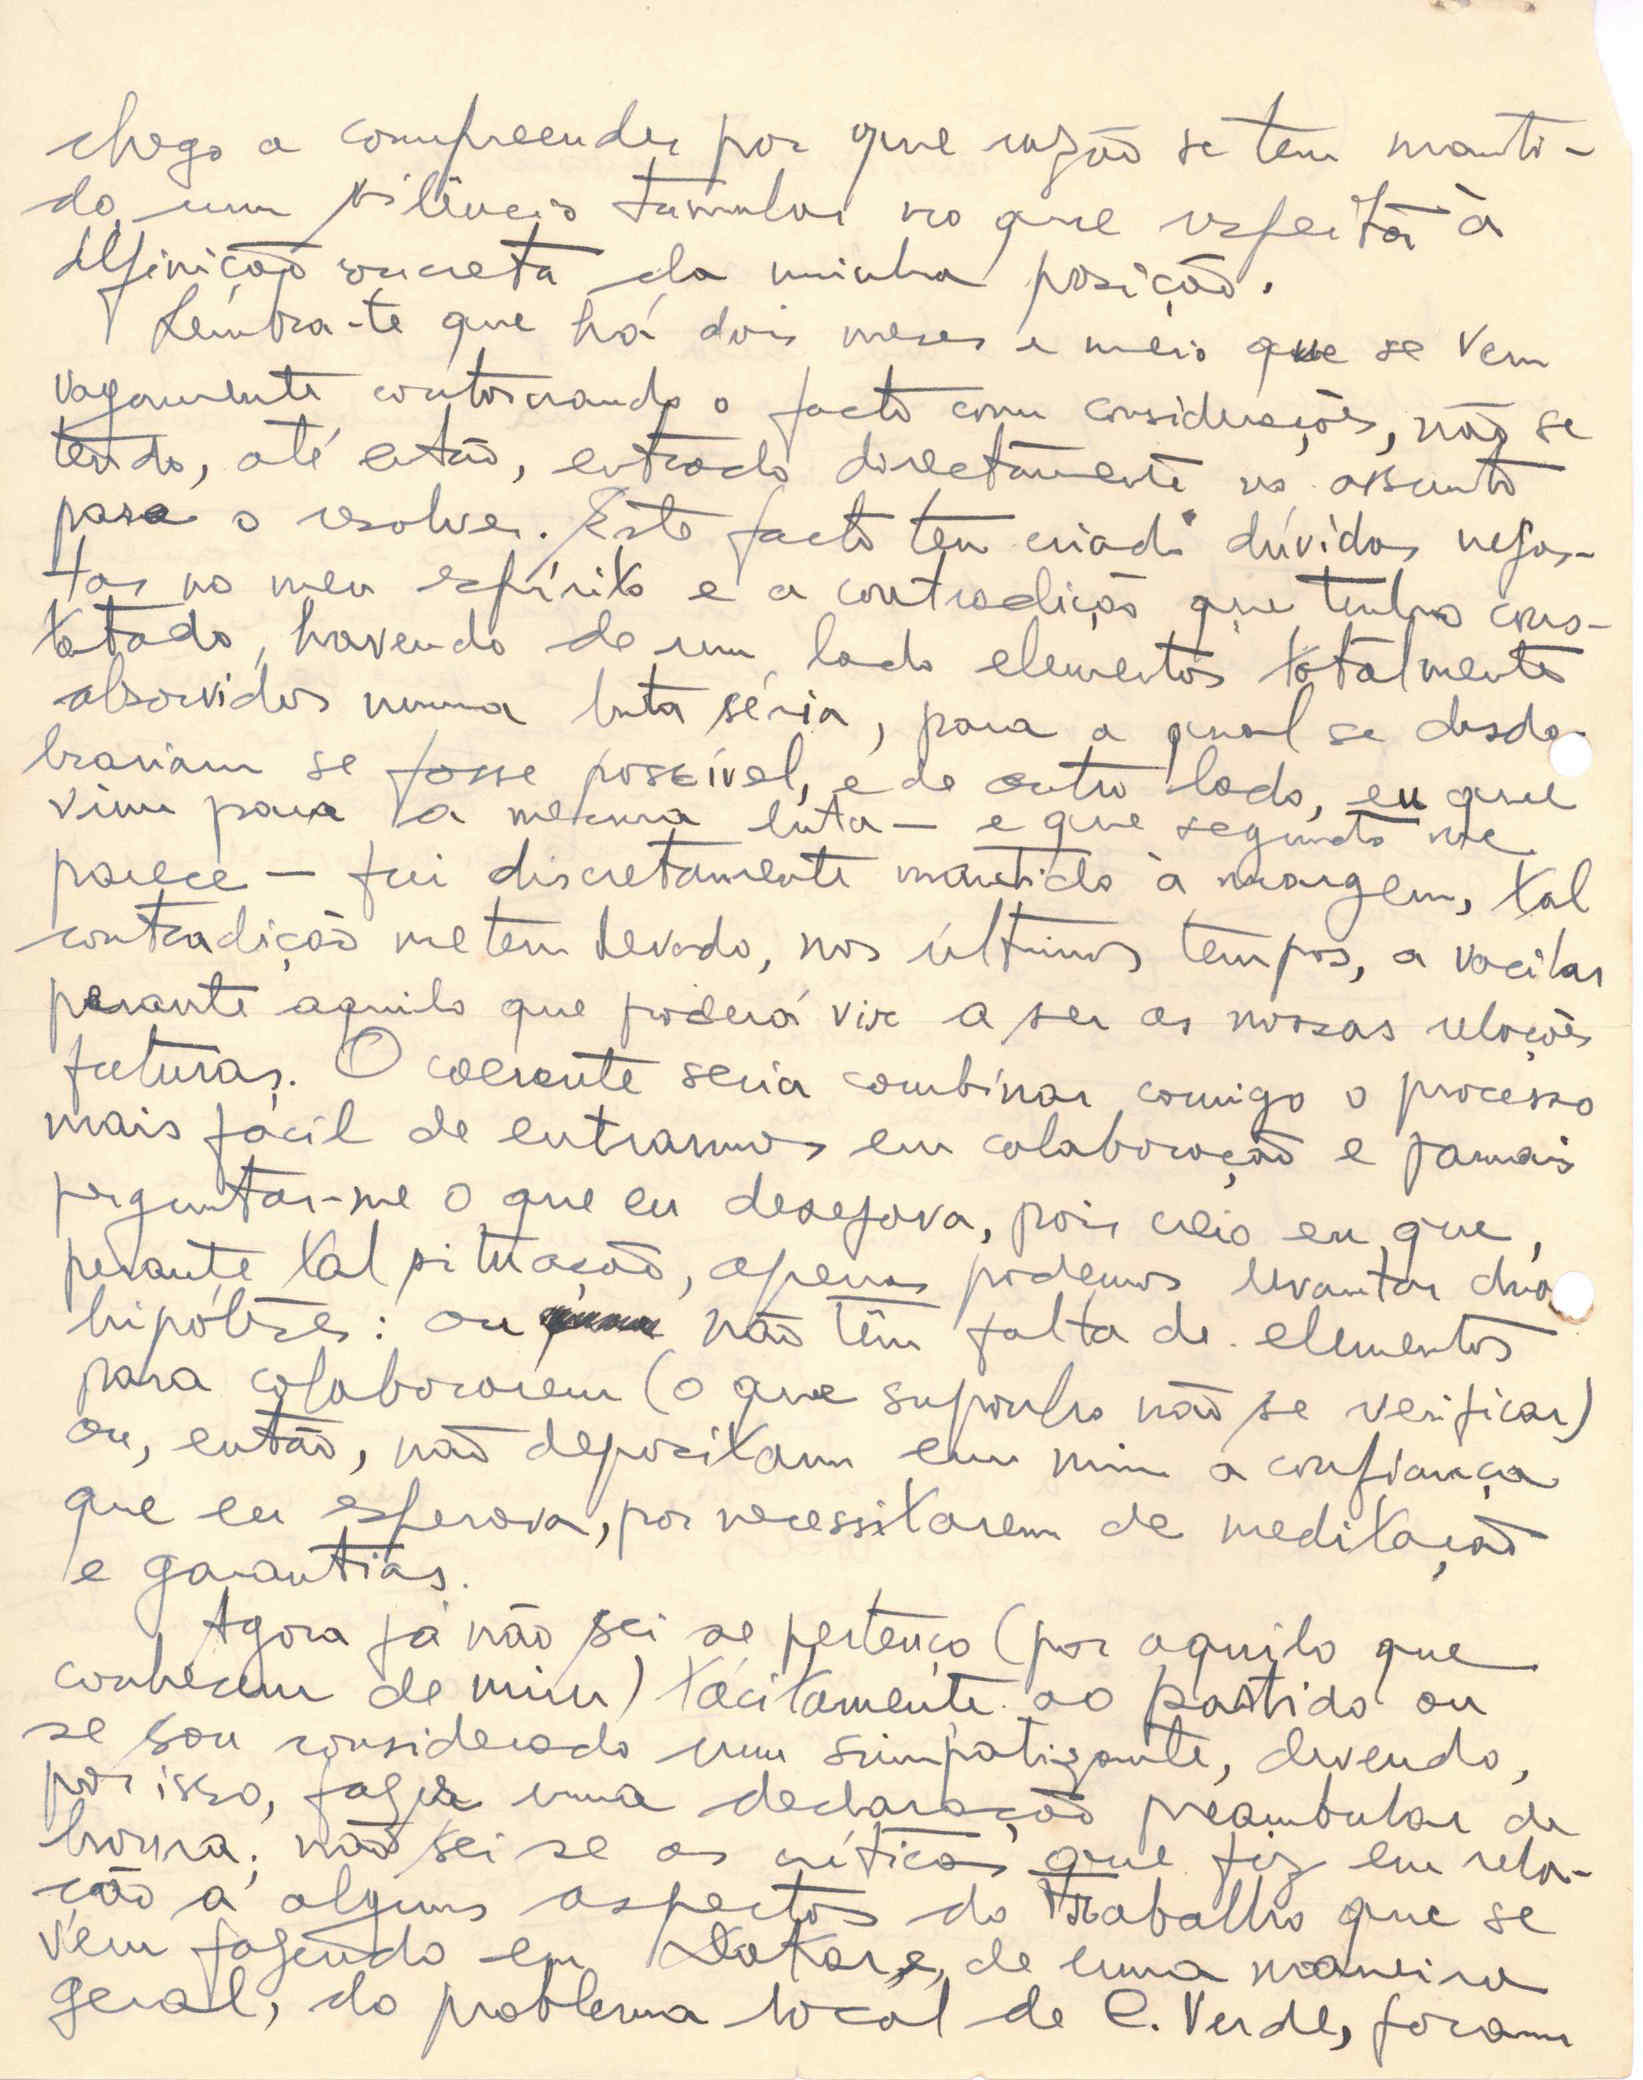 chego a compreender por que razão se tem manti-
do um silêncio tumular no que respeita à
definição concreta da minha posição.
Lembra-te que há dois meses e meio que se vem
vagamente contornando o facto com considerações, não se
tendo, até então, entrado directamente no assunto
para o resolver. Este facto tem criado dúvidas nefas-
tas no meu espírito e a contradição que tenho cons-
tatado, havendo de um lado elementos totalmente
absorvidos numa luta séria, para a qual se desdo-
brariam se fosse possível, e de outro lado, eu que
vim para a mesma luta — e que segundo me
parece — fui discretamente mantido à margem, tal
contradição me tem levado, nos últimos tempos, a vacilar
perante aquilo que poderá vir a ser as nossas relações
futuras. O coerente seria combinar comigo o processo
mais fácil de entrarmos em colaboração e jamais
perguntar-me o que eu desejava, pois creio eu que,
perante tal situação, apenas podemos levantar duas
hipóteses: ou não têm falta de elementos
para colaborarem (o que suponho não se verificar)
ou, então, não depositam em mim a confiança
que eu esperava, por necessitarem de meditação
e garantias.
Agora já não sei se pertenço (por aquilo que
conhecem de mim) tácitamente ao partido ou
se sou considerado um simpatizante, devendo,
por isso, fazer uma declaração preambular de
honra; não sei se as críticas que fiz em rela-
ção a alguns aspectos do trabalho que se
vem fazendo em Dakar e, de uma maneira
geral, do problema local de C. Verde, foram